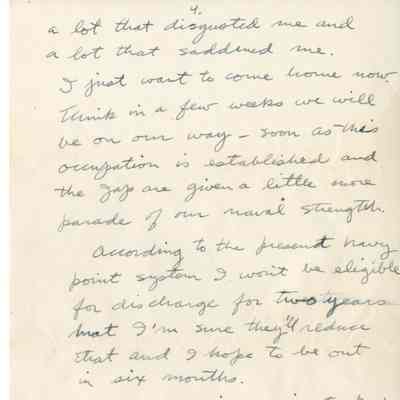 4.
a lot that disgusted me and
a lot that saddened me.
I just want to come home now.
Think in a few weeks we will
be on our way - soon as this
occupation is established and
the Japs are given a little more
parade of our naval strength.
According to the present Navy
point system I won't be eligible
for discharge for two years
but I'm sure they'll reduce
that and I hope to be out
in six months.